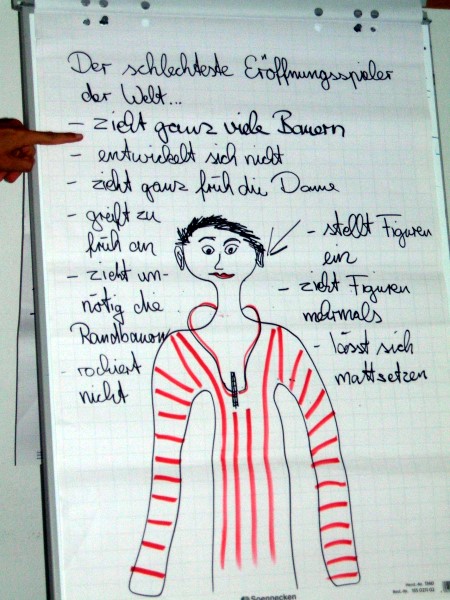 Der schlechteste Eröffnungsspieler
der Welt...
- zieht ganz viele Bauern
- entwickelt sich nicht
- zieht ganz früh die Dame
- greift zu
früh an
- zieht un-
nötig die
Randbauern
- rochiert
nicht
- stellt Figuren
ein
- zieht Figuren
mehrmals
- lässt sich
mattsetzen
Soennecken